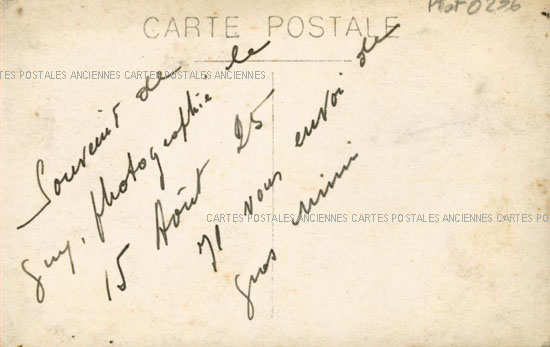 Phot 0236
CARTE POSTALE
CARTES POSTALES ANCIENNES CARTES POSTALES ANCIENNES
Souvenir de
Guy, photographié le
15 Août 25
Il vous envoi de
gros mimi
CARTES POSTALES ANCIENNES CARTES POSTALES ANCIENNES CARTES POS